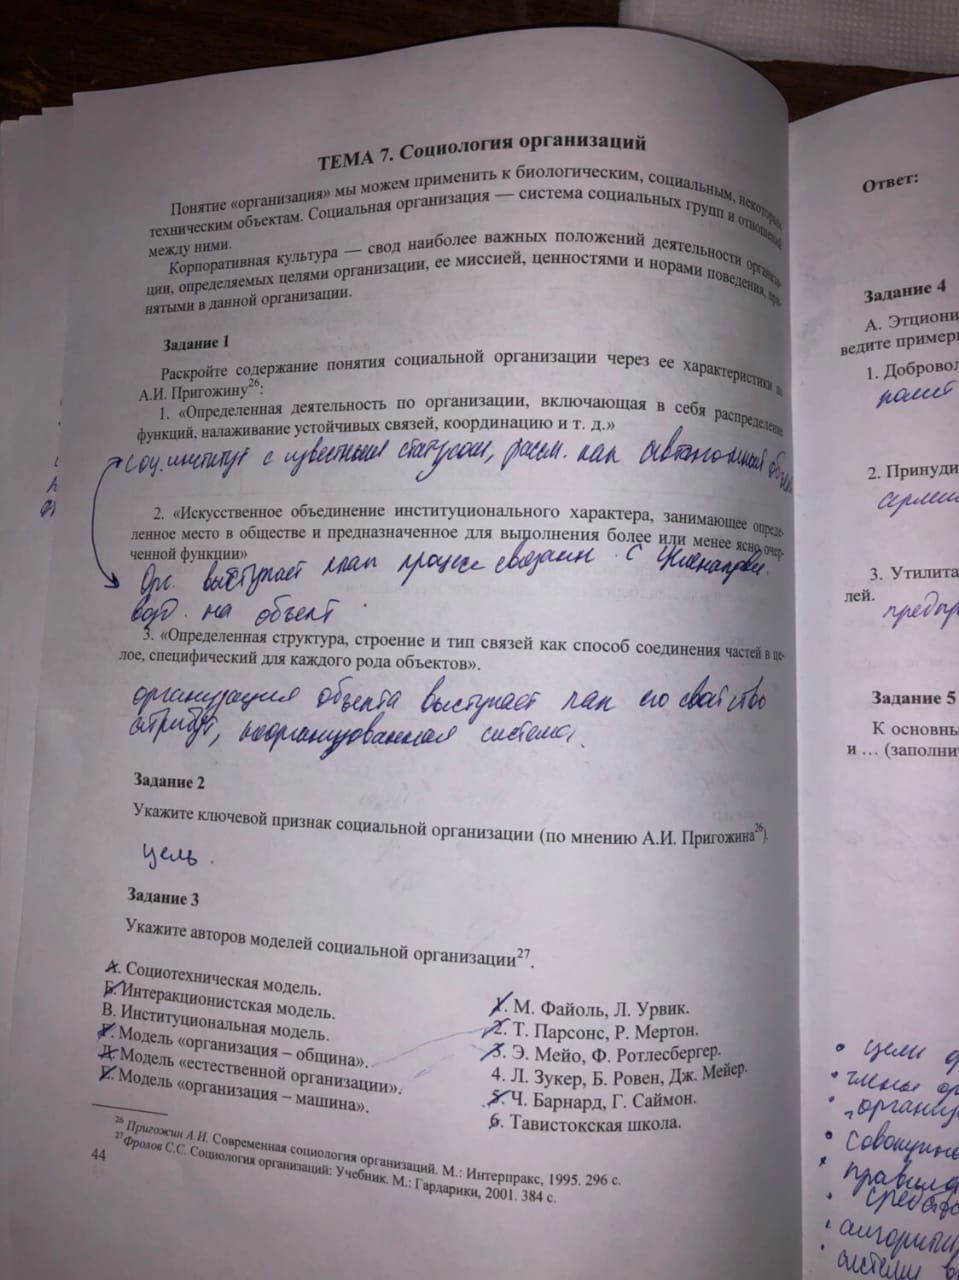 ТЕМА 7. Социология организаций
Понятие «организация» мы можем применить к биологическим, социальным, некоторым
техническим объектам. Социальная организация — система социальных групп и отношений
между ними.
Корпоративная культура — свод наиболее важных положений деятельности организа-
ции, определяемых целями организации, ее миссией, ценностями и норами поведения, при-
нятыми в данной организации.
Задание 1
Раскройте содержание понятия социальной организации через ее характеристики по
А.И. Пригожину26:
1. «Определенная деятельность по организации, включающая в себя распределение
функций, налаживание устойчивых связей, координацию и т. д.»
соц. институт с известным статусом, рассм. как автономный объект
2. «Искусственное объединение институционального характера, занимающее опреде-
ленное место в обществе и предназначенное для выполнения более или менее ясно очер-
ченной функции»
Орг. выступает как процесс связанн. с
возд. на объект
3. «Определенная структура, строение и тип связей как способ соединения частей в це-
лое, специфический для каждого рода объектов».
организация объекта выступает как его свойство
атрибут, неорганизованная система.
Задание 2
Укажите ключевой признак социальной организации (по мнению А.И. Пригожина26).
цель.
Задание 3
Укажите авторов моделей социальной организации27.
А. Социотехническая модель.
Б. Интеракционистская модель.
В. Институциональная модель.
Г. Модель «организация – община».
Д. Модель «естественной организации».
Е. Модель «организация – машина».
1. М. Файоль, Л. Урвик.
2. Т. Парсонс, Р. Мертон.
3. Э. Мейо, Ф. Ротлесбергер.
4. Л. Зукер, Б. Ровен, Дж. Мейер.
5. Ч. Барнард, Г. Саймон.
6. Тавистокская школа.
26 Пригожин А.И. Современная социология организаций. М.: Интерпракс, 1995. 296 с.
27 Фролов С.С. Социология организаций: Учебник. М.: Гардарики, 2001. 384 с.
44
Ответ:
Задание 4
А. Этциони
ведите пример
1. Добровол
полит
2. Принуди
3. Утилита
лей.
предпр
Задание 5
К основны
и … (заполни
• цели
• члены орг
• организ
• совокупно
• правила
• средства
• алгоритм
• системы